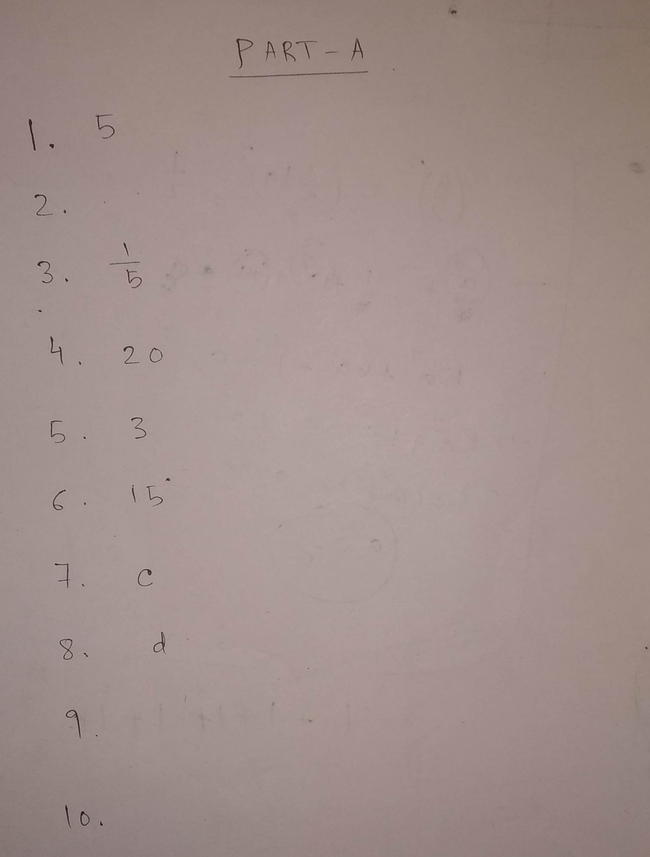 PART-A
1. 5
2.
3. 1/5
4. 20
5. 3
6. 15°
7. c
8. d
9.
10.